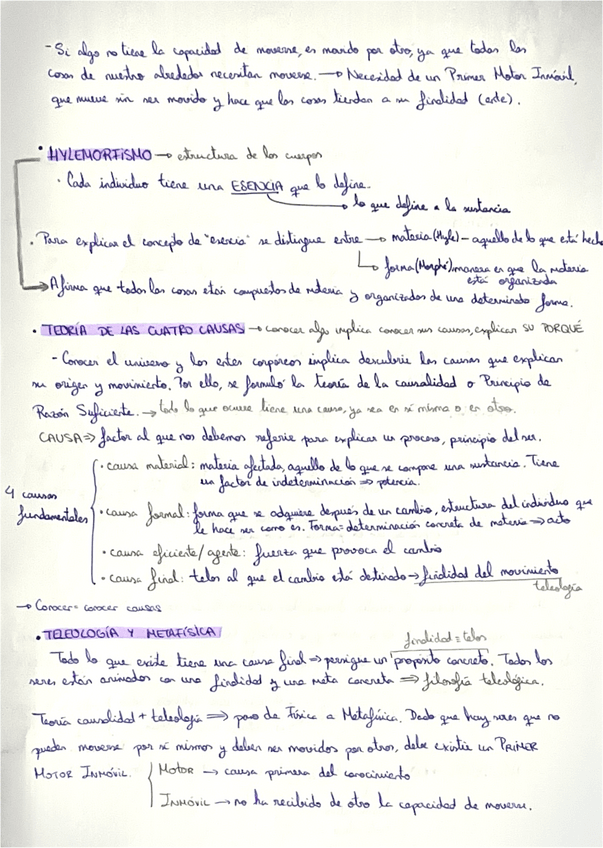 - Si algo no tiene la capacidad de moverse, es movido por otro, ya que todas las
cosas de nuestro alrededor necesitan moverse. → Necesidad de un Primer Motor Inmóvil,
que mueve sin ser movido y hace que las cosas tiendan a su finalidad (ente).
• HYLEMORFISMO → estructura de los cuerpos
· Cada individuo tiene una ESENCIA que lo define.
→ lo que define a la sustancia
· Para explicar el concepto de "esencia" se distingue entre → materia (Hyle) - aquello de lo que está hecho
→ forma (Morphé) manera en que la materia
está organizada
→ Afirma que todas las cosas están compuestas de materia y organizadas de una determinada forma.
• TEORÍA DE LAS CUATRO CAUSAS → conocer algo implica conocer sus causas, explicar SU PORQUÉ
- Conocer el universo y los entes corpóreos implica descubrir las causas que explican
su origen y movimiento. Por ello, se formuló la teoría de la causalidad o Principio de
Razón Suficiente. → todo lo que ocurre tiene una causa, ya sea en sí misma o en otro.
CAUSA ⇒ factor al que nos debemos referir para explicar un proceso, principio del ser.
4 causas fundamentales
· causa material: materia afectada, aquello de lo que se compone una sustancia. Tiene
un factor de indeterminación ⇒ potencia.
· causa formal: forma que se adquiere después de un cambio, estructura del individuo que
le hace ser como es. Forma = determinación concreta de materia ⇒ acto
· causa eficiente/agente: fuerza que provoca el cambio
· causa final: telos al que el cambio está destinado → finalidad del movimiento
teleología
→ Conocer = conocer causas
• TELEOLOGÍA Y METAFÍSICA
finalidad = telos
Todo lo que existe tiene una causa final ⇒ persigue un "propósito concreto". Todos los
seres están animados con una finalidad y una meta concreta ⇒ filosofía teleológica.
Teoría causalidad + teleología ⇒ paso de Física a Metafísica. Dado que hay seres que no
pueden moverse por sí mismos y deben ser movidos por otros, debe existir un PRIMER
MOTOR INMÓVIL.
MOTOR → causa primera del conocimiento
INMÓVIL → no ha recibido de otro la capacidad de moverse.